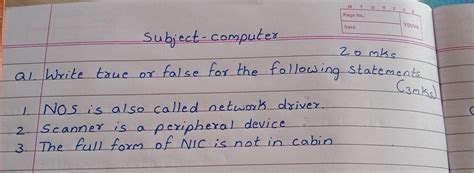 M T W T F S S
Page No.:
Date:
YOUVA
Subject-computer
20 mks
Q1. Write true or false for the following statements.
(3mks)
1. NOS is also called network driver.
2. Scanner is a peripheral device
3. The full form of NIC is not in cabin